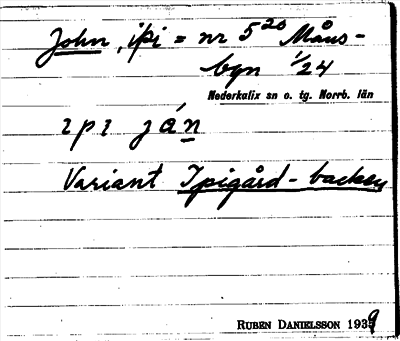 John, ipi = nr 5²⁰ Måns-
byn 1/24
Nederkalix sn o. tg. Norrb. län
ɩpɩ ján
Variant Ipigård-backen
RUBEN DANIELSSON 1939